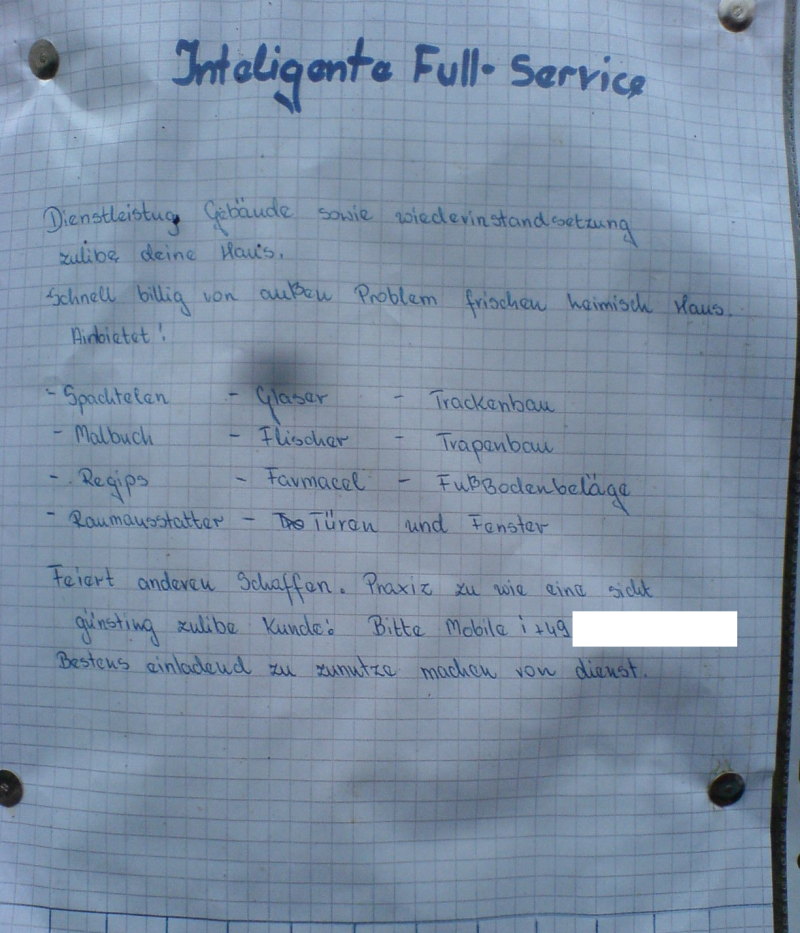 Inteligente Full-Service
Dienstleistug Gebäude sowie wiederinstandsetzung
zulibe deine Haus.
Schnell billig von außen Problem frischen heimisch Haus.
Ainbietet!
- Spachtelen - Glaser - Trackenbau
- Malbuch - Flischer - Trapenbau
- Regips - Farmacel - Fußbodenbeläge
- Raumausstatter - Türen und Fenster
Feiert anderen Schaffen. Praxiz zu wie eine sicht
günsting zulibe Kunde: Bitte Mobile i +49
Bestens einladend zu zunutze machen von dienst.